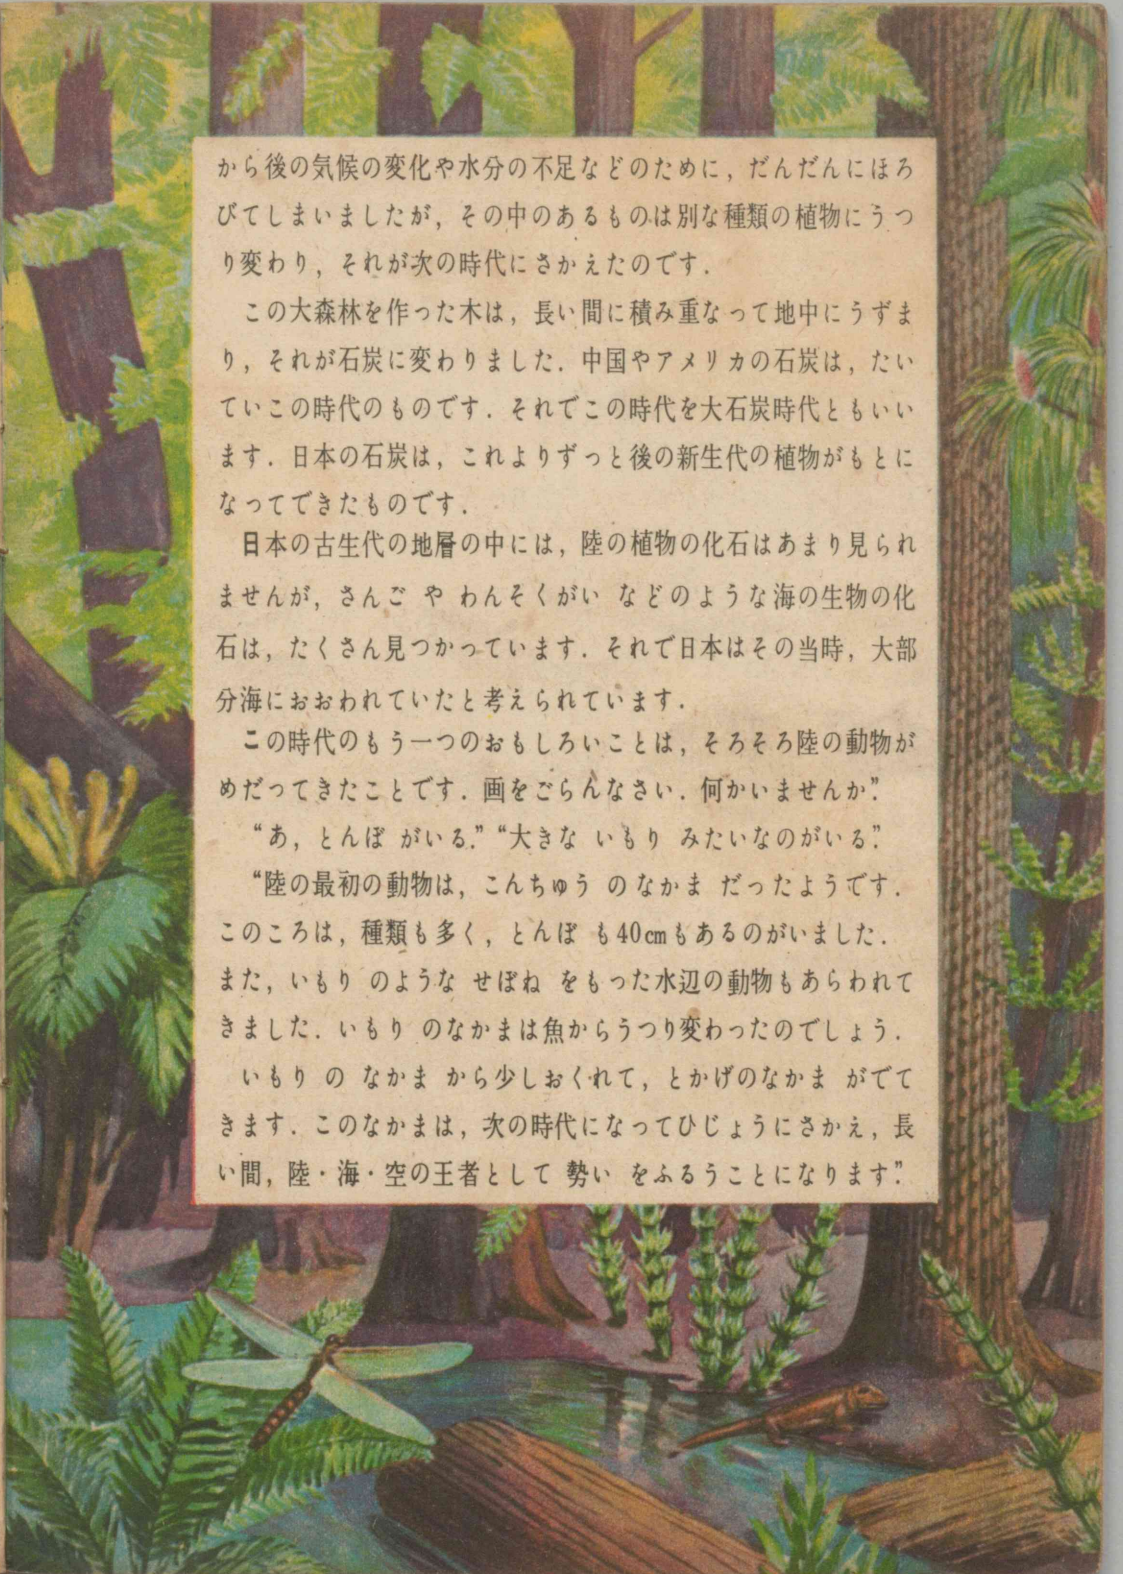 から後の気候の変化や水分の不足などのために，だんだんにほろ
びてしまいましたが，その中のあるものは別な種類の植物にうつ
り変わり，それが次の時代にさかえたのです．
この大森林を作った木は，長い間に積み重なって地中にうずま
り，それが石炭に変わりました．中国やアメリカの石炭は，たい
ていこの時代のものです．それでこの時代を大石炭時代ともいい
ます．日本の石炭は，これよりずっと後の新生代の植物がもとに
なってできたものです．
日本の古生代の地層の中には，陸の植物の化石はあまり見られ
ませんが，さんご や わんそくがい などのような海の生物の化
石は，たくさん見つかっています．それで日本はその当時，大部
分海におおわれていたと考えられています．
この時代のもう一つのおもしろいことは，そろそろ陸の動物が
めだってきたことです．画をごらんなさい．何かいませんか”．
“あ，とんぼ がいる．”“大きな いもり みたいなのがいる”．
“陸の最初の動物は，こんちゅう のなかま だったようです．
このころは，種類も多く，とんぼ も40㎝もあるのがいました．
また，いもり のような せぼね をもった水辺の動物もあらわれて
きました．いもり のなかまは魚からうつり変わったのでしょう．
いもり の なかま から少しおくれて，とかげのなかま がでて
きます．このなかまは，次の時代になってひじょうにさかえ，長
い間，陸・海・空の王者として 勢い をふるうことになります”．